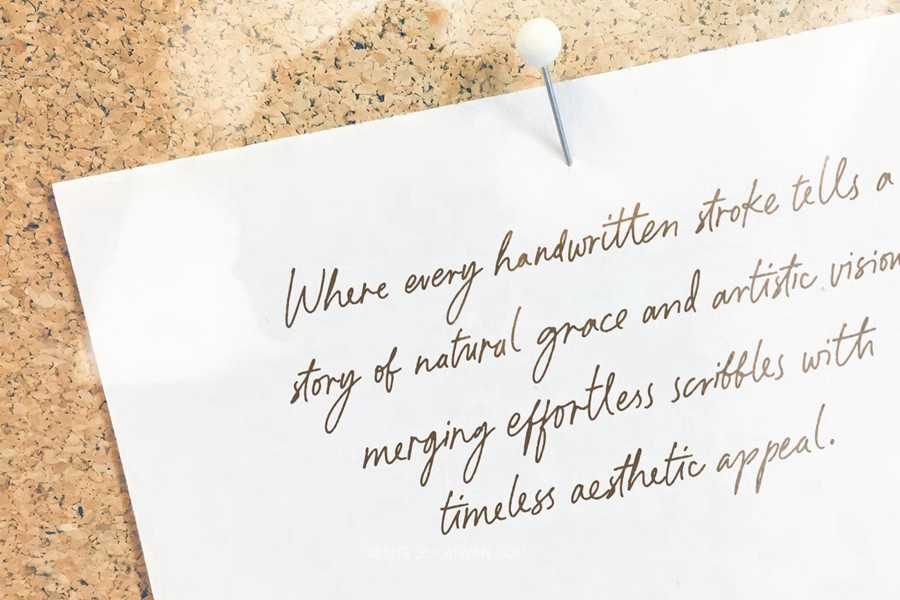 Where every handwritten stroke tells a
story of natural grace and artistic vision
merging effortless scribbles with
timeless aesthetic appeal.
SUCAIWAN.COM